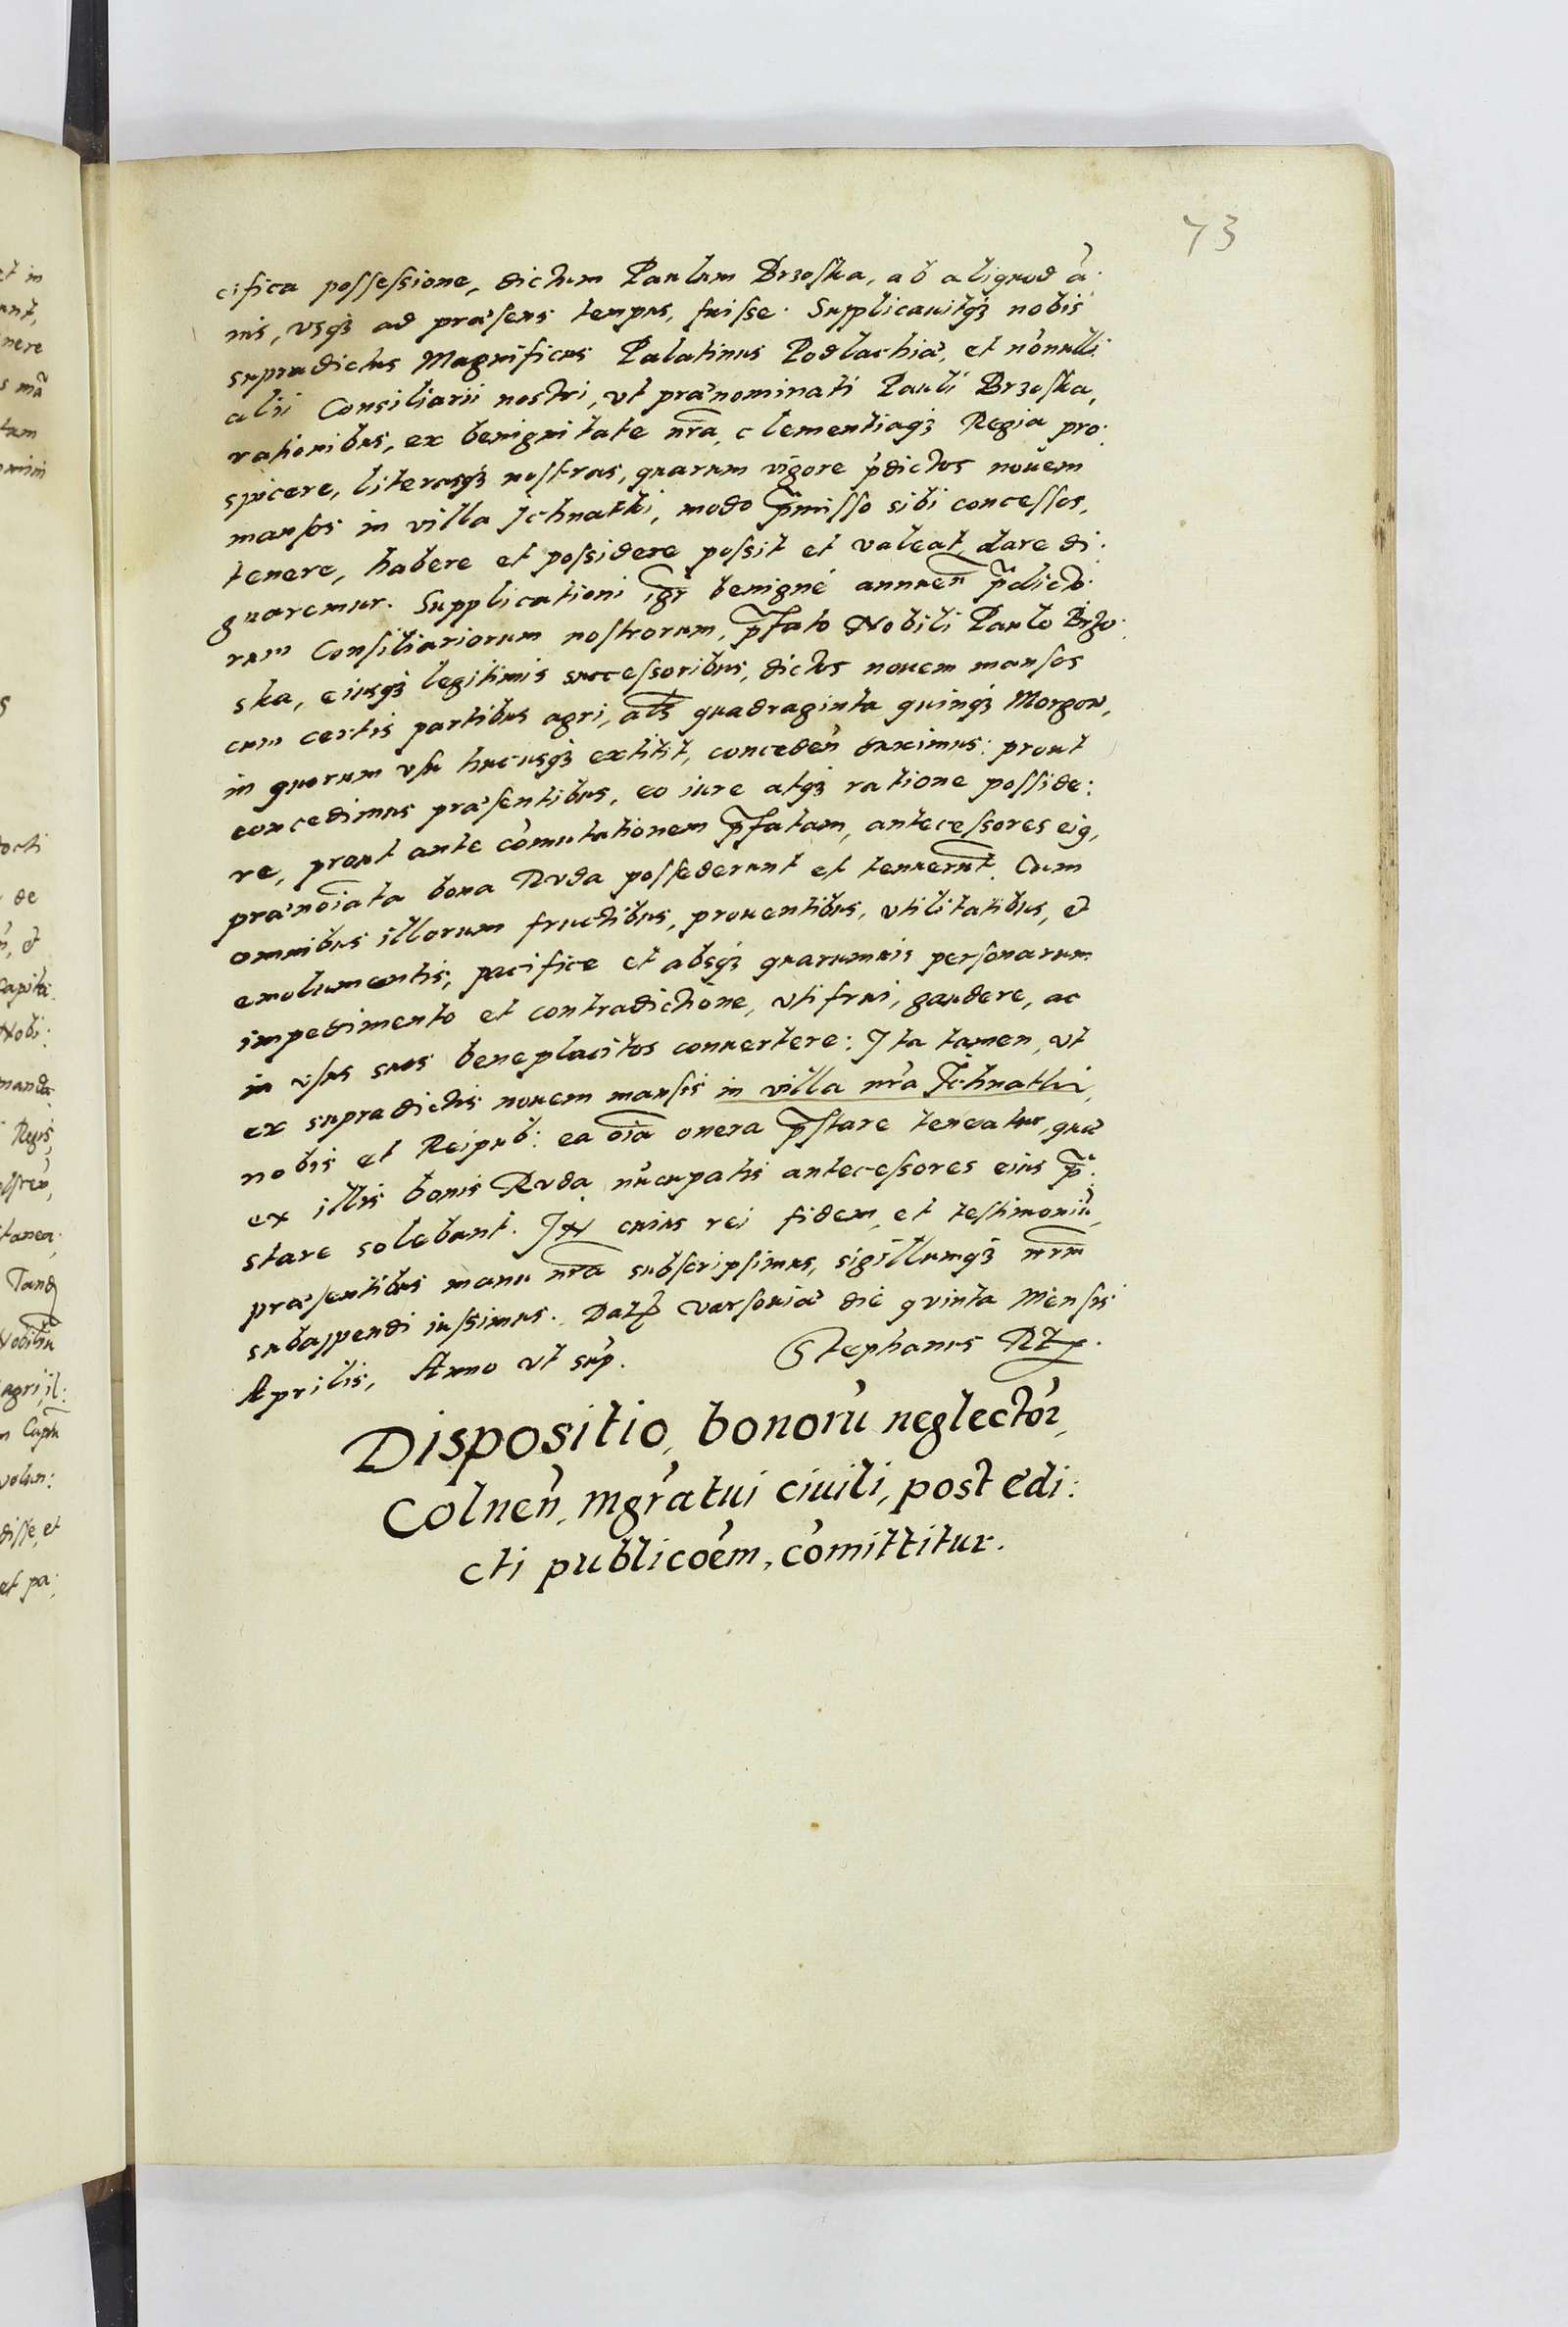 73
cifica possessione, dictum Paulum Brzoska, ab aliquod ā:
nis, vsq3 ad præsens tempus, fuisse. Supplicauitq3 nobis
supradictus Magnificus Palatinus Podlachiæ, et nōnulli
alii Consiliarii nostri, vt prænominati Pauli Brzoska,
rationibus, ex benignitate nrā, clementiaq3 Regia pro:
spicere, literasq3 nostras, quarum vigore p̄dictos nouem
mansos in villa Jchnatki, modo p̄misso sibi concessos,
tenere, habere et possidere possit et valeat, dare di:
gnaremur. Supplicationi igr̄ benignè annuen̄ p̄dicto:
rum Consiliariorum nostrorum, p̄fato Nobili Paulo Brzo:
ska, eiusq3 legitimis successoribus, dictos nouem mansos
cum certis partibus agri, als̄ quadraginta quinq3 Morgow,
in quorum vsu hucusq3 extitit, conceden̄ duximus: prout
concedimus præsentibus, eo iure atq3 ratione posside:
re, prout ante cōmutationem p̄fatam, antecessores eig,
prænoīata bona Ruda possederunt et tenuerūt. Cum
omnibus illorum fructibus, prouentibus, vtilitatibus, et
emolumentis, pacifice et absq3 quarumuis personarum
impedimento et contradictione, vti frui, gaudere, ac
in vsus suos beneplacitos conuertere: Jta tamen, vt
ex supradictis nouem mansis in villa nrā Jchnatki,
nobis et Reipub: ea oīa onera p̄stare teneatur, quæ
ex illis bonis Ruda nūcupatis antecessores eius p̄:
stare solebant. JN cuius rei fidem, et testimoniū,
præsentibus manu nrā subscripsimus, sigillumq3 nrm̄
subappendi iussimus. Dat̄ Varsouiæ die quinta Mensis
Aprilis, Anno vt sup̄. Stephanus Rx.
Dispositio, bonorū neglector̄,
Colnen̄, mgrātui ciuili, post edi:
cti publicoēm, cōmittitur.